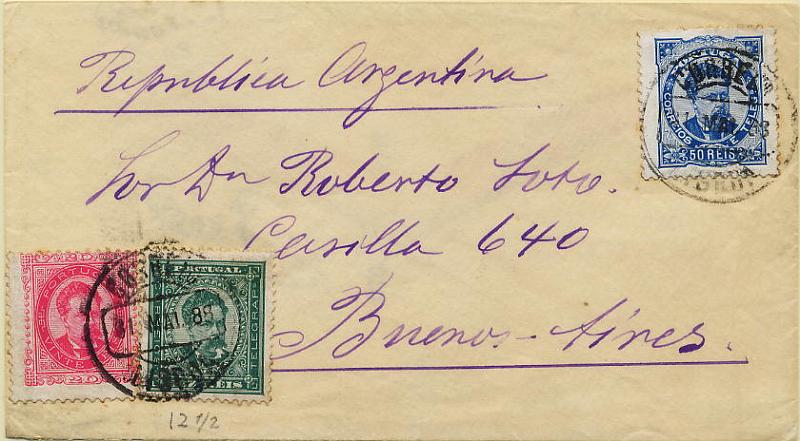 Republica Argentina
Sor Dn Roberto Soto.
Casilla 640
Buenos-Aires.
CORREIOS
50 REIS
PORTUGAL
VINTE
PORTUGAL
TELEGRAFOS
REIS
12 1/2